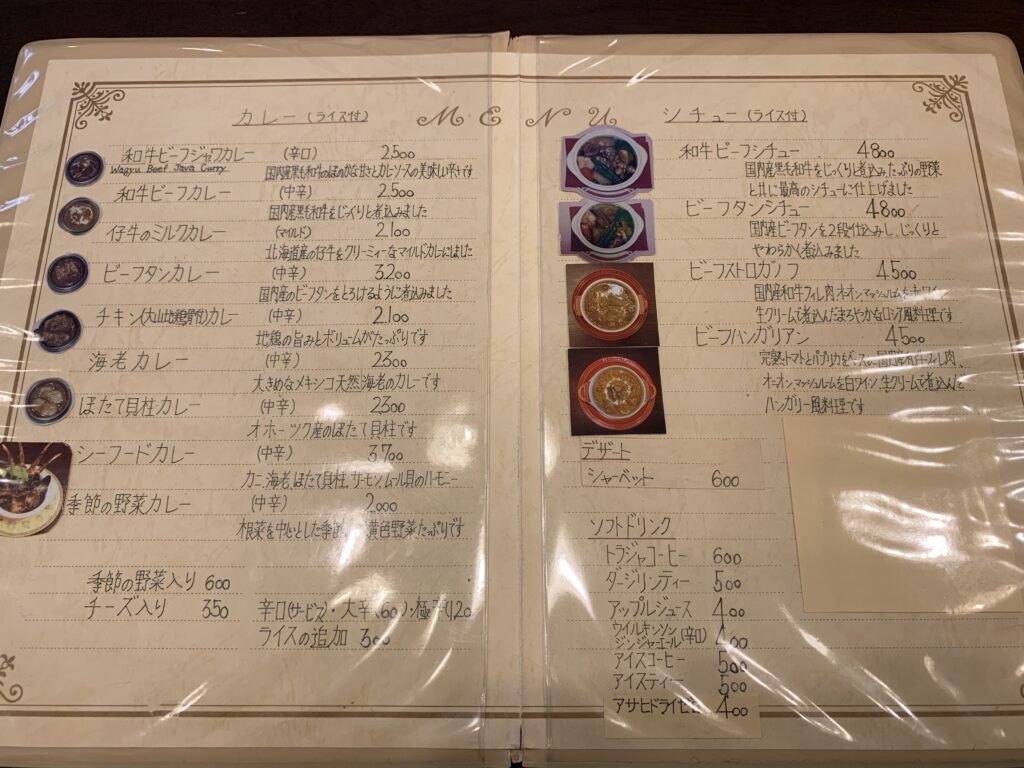 MENU
カレー (ライス付)
和牛ビーフジャワカレー (辛口) 2500
Wagyu Beef Java Curry 国内産黒毛和牛のほのかな甘さとカレーソースの美味しい辛さです
和牛ビーフカレー (中辛) 2500
国内産黒毛和牛をじっくりと煮込みました
仔牛のミルクカレー (マイルド) 2100
北海道産の仔牛をクリーミィーなマイルドカレーにしました
ビーフタンカレー (中辛) 3200
国内産のビーフタンをとろけるように煮込みました
チキン(大山地鶏骨付)カレー (中辛) 2100
地鶏の旨みとボリュームがたっぷりです
海老カレー (中辛) 2300
大きめなメキシコ天然海老のカレーです
ほたて貝柱カレー (中辛) 2300
オホーツク産のほたて貝柱です
シーフードカレー (中辛) 3700
カニ、海老、ほたて貝柱、サーモン、ムール貝のハーモニー
季節の野菜カレー (中辛) 2000
根菜を中心とした季節の 黄色野菜たっぷりです
季節の野菜入り 600
チーズ入り 350
辛口(サービス)・大辛(60)・極辛(120
ライスの追加 300
シチュー (ライス付)
和牛ビーフシチュー 4800
国内産黒毛和牛をじっくりと煮込みたっぷりの野菜
と共に最高のシチューに仕上げました
ビーフタンシチュー 4800
国内産ビーフタンを2段仕込みし、じっくりと
やわらかく煮込みました
ビーフストロガノフ 4500
国内産和牛フィレ肉、オニオン、マッシュルームを赤ワイン、
生クリームで煮込んだまろやかなロシア風料理です
ビーフハンガリアン 4500
完熟トマトとパプリカをベースに国内産和牛フィレ肉、
オニオン、マッシュルームを白ワイン、生クリームで煮込んだ
ハンガリー風料理です
デザート
シャーベット 600
ソフトドリンク
トラジャコーヒー 600
ダージリンティー 500
アップルジュース 400
ウイルキンソン
ジンジャーエール(辛口) 400
アイスコーヒー 500
アイスティー 500
アサヒドライゼロ 400